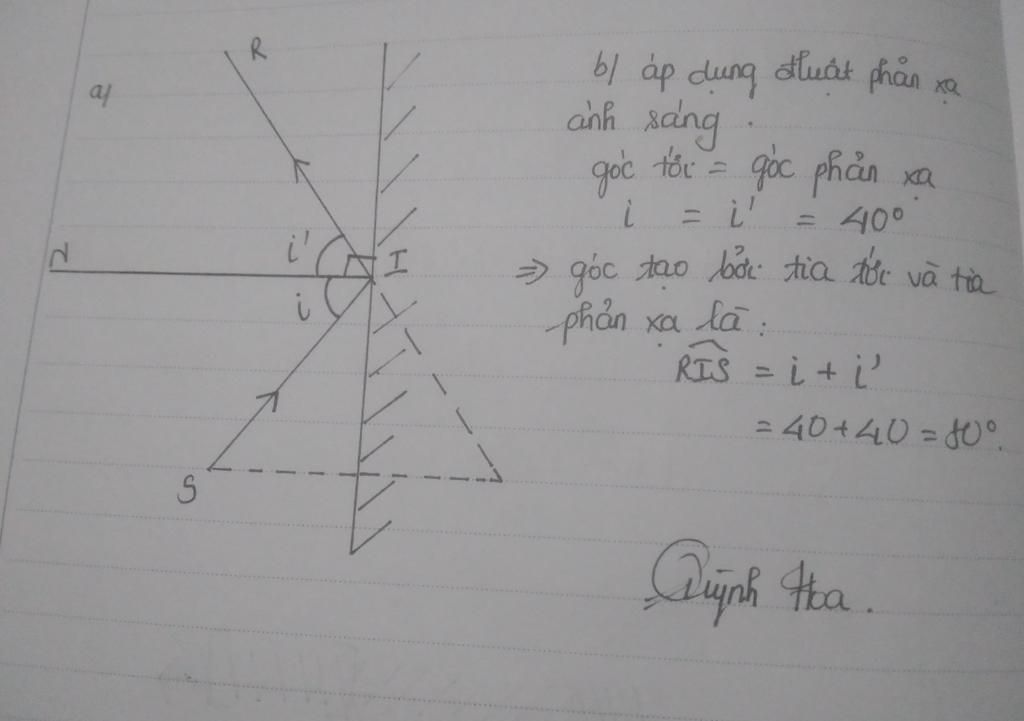 a/
R
N
i'
I
i
S
b/ áp dụng đluật phản xạ
ánh sáng .
góc tới = góc phản xạ
i = i' = 40°
=> góc tạo bởi tia tới và tia
phản xạ là :
RIS = i + i'
= 40 + 40 = 80°.
Quỳnh Hoa .